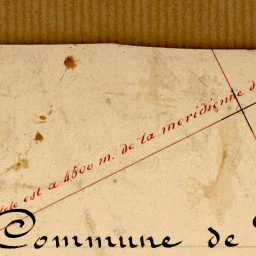 est a 4500 m. de la méridienne d
Commune de